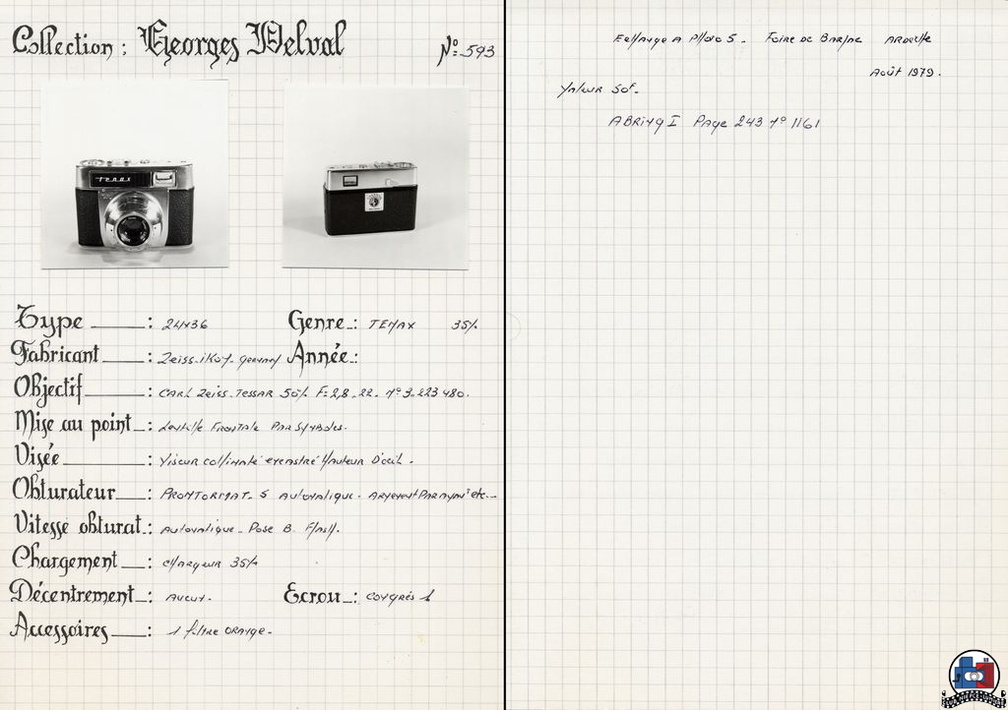 Collection : Georges Delval N° 593
Tenax
Type : 24x36 Genre : TENAX 35%
Fabricant : Zeiss-ikon-germany Année :
Objectif : CARL Zeiss-TESSAR 50% F=2,8-22- N° 3.223 480.
Mise au point : Lentille FRONTALE PAR SYMBOLES.
Visée : Viseur collimaté excentré Hauteur D'oeil.
Obturateur : PRONTORMAT-S Automatique. Armement Par etc...
Vitesse obturat. : Automatique - Pose B. Flash.
Chargement : chargeur 35%
Décentrement : Aucun. Ecrou : congrès 1
Accessoires : 1 filtre ORANGE.
Echange A Photo S. Foire de Barjac ARDECHE
Août 1979.
Valeur 50F.
ABRING I Page 243 N° 1161